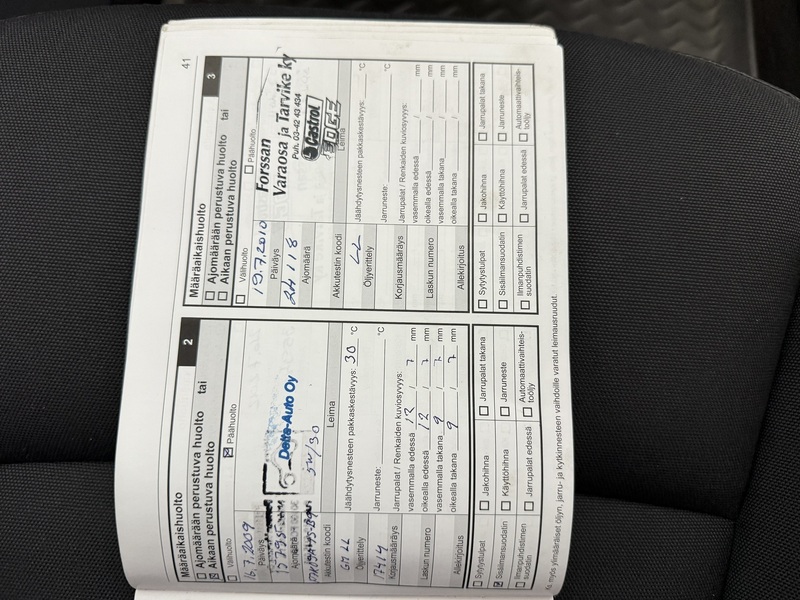 41
Määräaikaishuolto 2
Ajomäärään perustuva huolto tai
Aikaan perustuva huolto
Välihuolto Päähuolto
16.7.2009
Päiväys
Ajomäärä
Delta-Auto Oy
5W/30
Akkutestin koodi Leima
GM LL
Öljyerittely
Jäähdytysnesteen pakkaskestävyys: 30 °C
17414
Korjausmääräys
Jarruneste: °C
Jarrupalat / Renkaiden kuviosyvyys:
vasemmalla edessä 12 / 7 mm
Laskun numero
oikealla edessä 12 / 7 mm
vasemmalla takana 9 / 7 mm
Allekirjoitus
oikealla takana 9 / 7 mm
Sytytystulpat Jakohihna Jarrupalat takana
Sisäilmansuodatin Käyttöhihna Jarruneste
Ilmanpuhdistimen suodatin Jarrupalat edessä Automaattivaihteis-
tööljy
Määräaikaishuolto 3
Ajomäärään perustuva huolto tai
Aikaan perustuva huolto
Välihuolto Päähuolto
19.7.2010
Päiväys
24118
Ajomäärä
Forssan
Varaosa ja Tarvike ky
Puh. 03-42 43 434
Castrol
EDGE
Akkutestin koodi Leima
LL
Öljyerittely
Jäähdytysnesteen pakkaskestävyys: °C
Korjausmääräys
Jarruneste: °C
Jarrupalat / Renkaiden kuviosyvyys:
vasemmalla edessä / mm
Laskun numero
oikealla edessä / mm
vasemmalla takana / mm
Allekirjoitus
oikealla takana / mm
Sytytystulpat Jakohihna Jarrupalat takana
Sisäilmansuodatin Käyttöhihna Jarruneste
Ilmanpuhdistimen suodatin Jarrupalat edessä Automaattivaihteis-
tööljy
myös ylimääräiset öljyn, jarru- ja kytkinnesteen vaihdoille varatut leimausruudut.